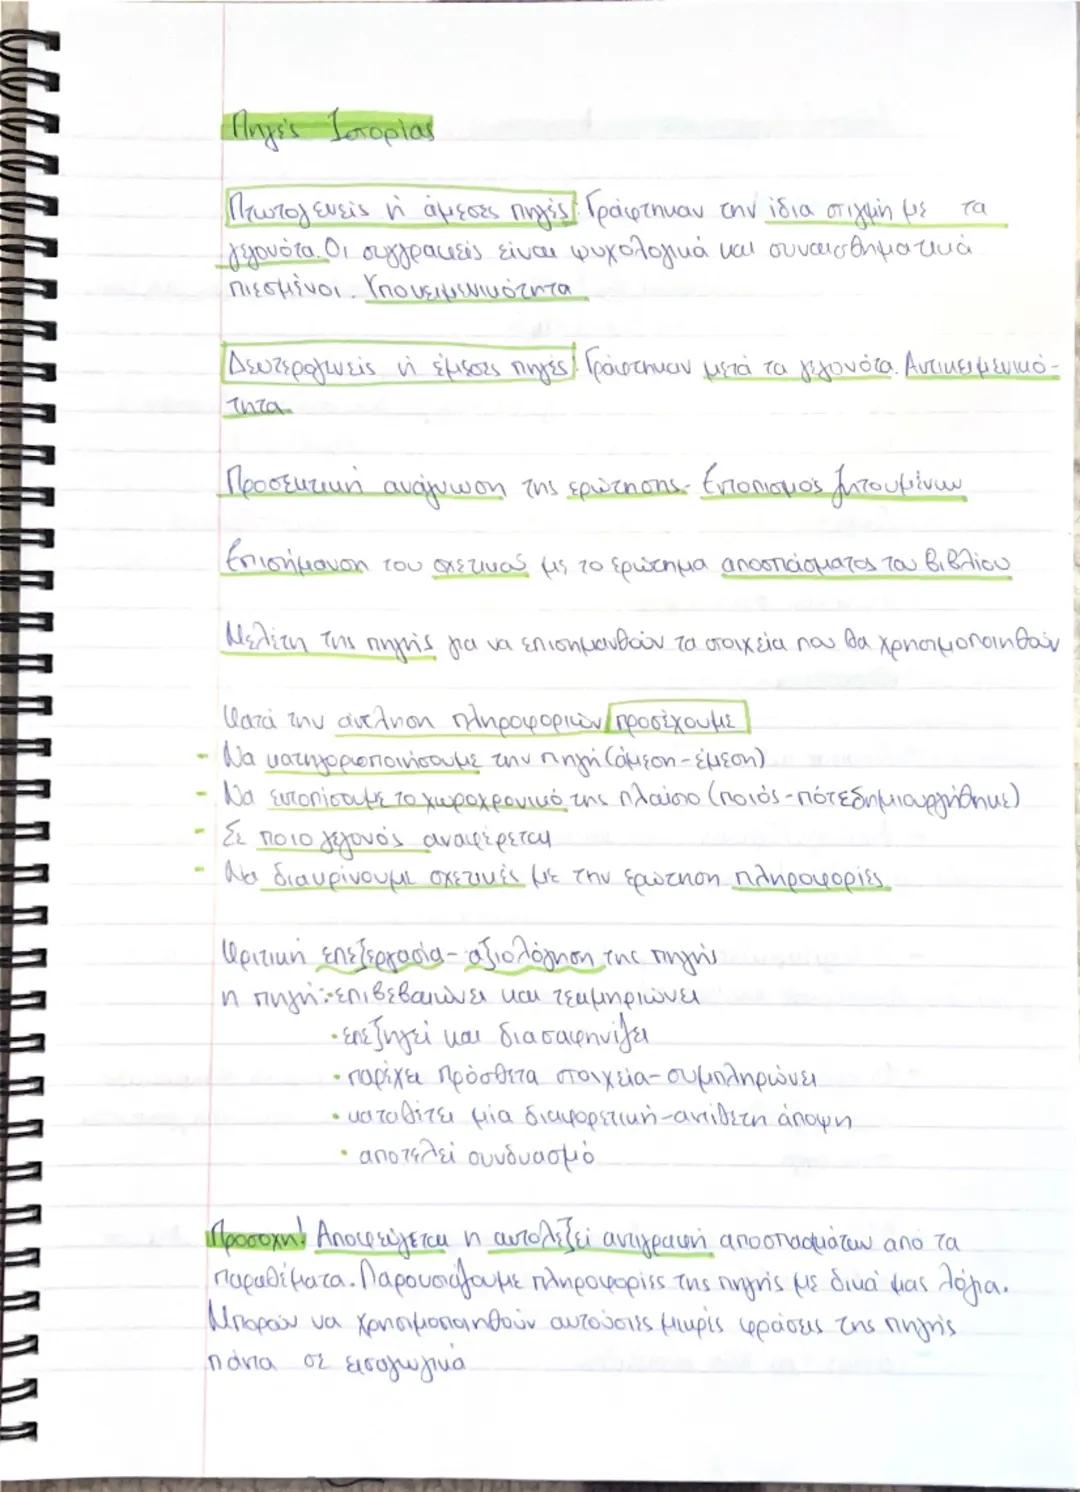 Πηγές Ιστορίας
Πρωτογενείς ή άμεσες πηγές: Γράφτηκαν την ίδια στιγμή με τα
γεγονότα. Οι συγγραφείς είναι ψυχολογικά και συναισθηματικά
πιεσμένοι. Υποκειμενικότητα
Δευτερογενείς ή έμεσες πηγές: Γράφτηκαν μετά τα γεγονότα. Αντικειμενικό-
τητα.
Προσεκτική ανάγνωση της ερώτησης- Εντοπισμός ζητουμένων
Επισήμανση του σχετικού με το ερώτημα αποσπάσματος του βιβλίου
Μελέτη της πηγής για να επισημανθούν τα στοιχεία που θα χρησιμοποιηθούν
Κατά την άντληση πληροφοριών προσέχουμε
- Να κατηγοριοποιήσουμε την πηγή (άμεση-έμεση)
- Να εντοπίσουμε το χωροχρονικό της πλαίσιο (ποιός-πότε δημιουργήθηκε)
- Σε ποιο γεγονός αναφέρεται
- Να διακρίνουμε σχετικές με την ερώτηση πληροφορίες
Κριτική επεξεργασία- αξιολόγηση της πηγής
η πηγή: •επιβεβαιώνει και τεκμηριώνει
•επεξηγεί και διασαφηνίζει
•παρέχει πρόσθετα στοιχεία-συμπληρώνει
•καταθέτει μία διαφορετική-αντίθετη άποψη
•αποτελεί συνδυασμό
Προσοχή! Αποφεύγεται η αυτολεξεί αντιγραφή αποσπασμάτων από τα
παραθέματα. Παρουσιάζουμε πληροφορίες της πηγής με δικά μας λόγια.
Μπορούν να χρησιμοποιηθούν αυτούσιες μικρές φράσεις της πηγής
πάντα σε εισαγωγικά